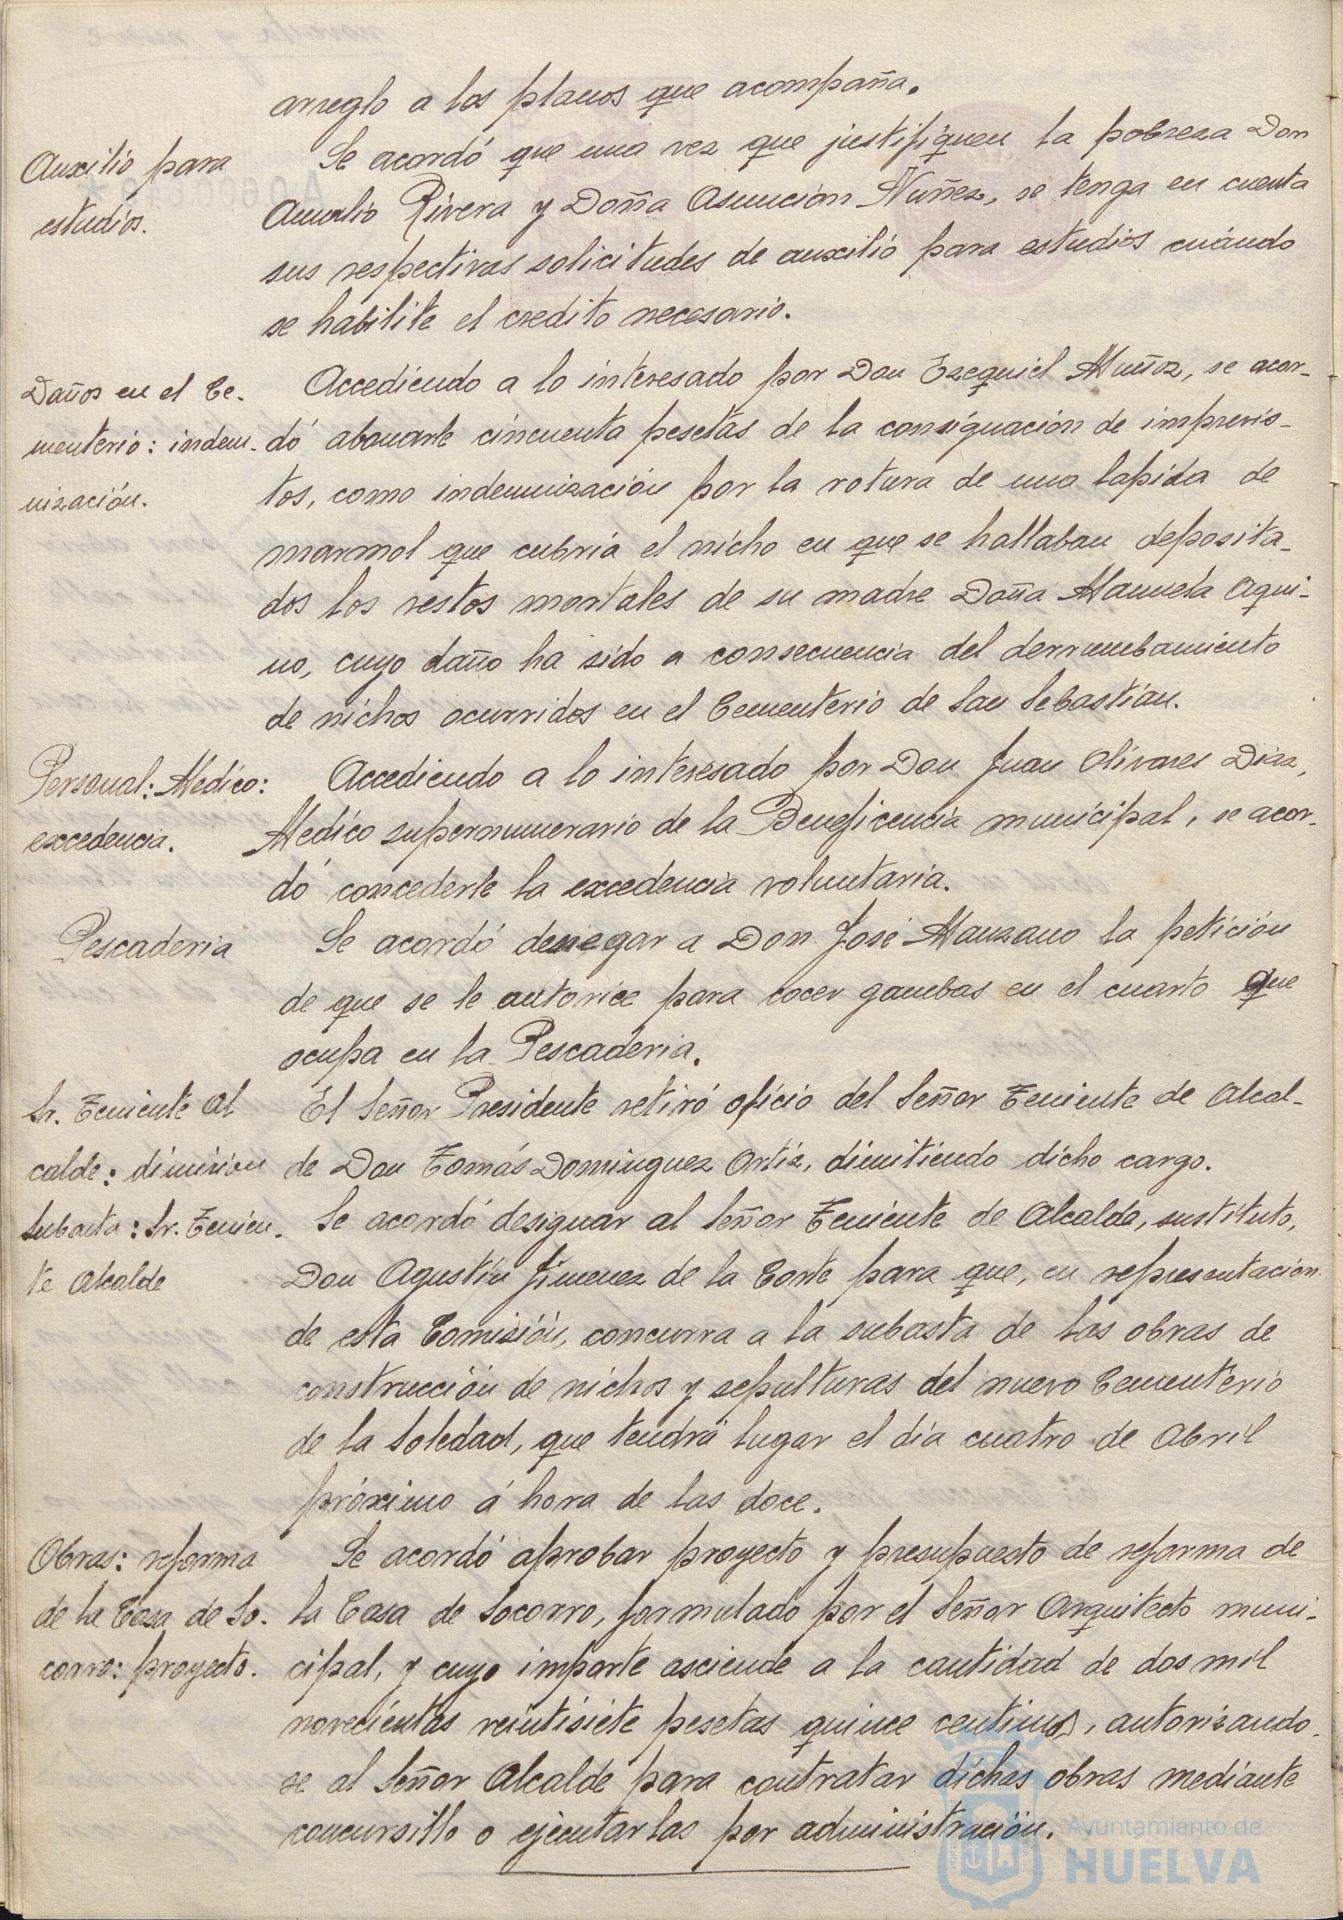 arreglo a los planos que acompaña.
Auxilio para
estudios.
Se acordó que una vez que justifiquen la pobreza Don
Aurelio Rivera y Doña Asunción Nuñez, se tenga en cuenta
sus respectivas solicitudes de auxilio para estudios cuándo
se habilite el credito necesario.
Daños en el Ce-
menterio: indem-
nización.
Accediendo a lo interesado por Don Ezequiel Muñoz, se acor-
dó abonarle cincuenta pesetas de la consignación de imprevis-
tos, como indemnización por la rotura de una lapida de
marmol que cubria el nicho en que se hallaban deposita-
dos los restos mortales de su madre Doña Manuela Aqui-
no, cuyo daño ha sido a consecuencia del derrumbamiento
de nichos ocurridos en el Cementerio de San Sebastián.
Personal: Medico:
excedencia.
Accediendo a lo interesado por Don Juan Olivares Diaz,
Medico supernumerario de la Beneficencia municipal, se acor-
dó concederle la excedencia voluntaria.
Pescaderia
Se acordó denegar a Don José Manzano la petición
de que se le autorice para cocer gambas en el cuarto que
ocupa en la Pescaderia.
Sr. Teniente Al
calde: dimision
El Señor Presidente retiró oficio del Señor Teniente de Alcal-
de Don Tomás Dominguez Ortiz, dimitiendo dicho cargo.
Subasta: Sr. Tenien-
te Alcalde
Se acordó designar al Señor Teniente de Alcalde, sustituto,
Don Agustín Jimenez de la Corte para que, en representacion
de esta Comisión, concurra a la subasta de las obras de
construcción de nichos y sepulturas del nuevo Cementerio
de la Soledad, que tendrá lugar el día cuatro de Abril
próximo á hora de las doce.
Obras: reforma
de la Casa de So-
corro: proyecto.
Se acordó aprobar proyecto y presupuesto de reforma de
la Casa de Socorro, formulado por el Señor Arquitecto muni-
cipal, y cuyo importe asciende a la cantidad de dos mil
novecientas veintisiete pesetas quince centimos, autorizando-
se al Señor Alcalde para contratar dichas obras mediante
concursillo o ejecutarlas por administración.
Ayuntamiento de
HUELVA